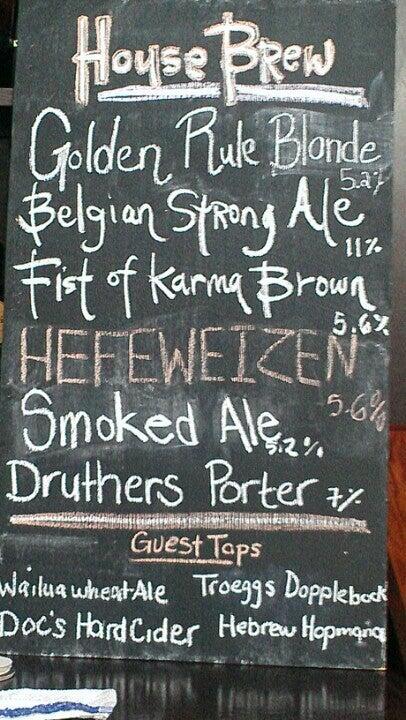 House Brew
Golden Rule Blonde
5.2%
Belgian Strong Ale
11%
Fist of Karma Brown
5.6%
HEFEWEIZEN
5.6%
Smoked Ale
5.2%
Druthers Porter 7%
Guest Taps
Wailua wheat Ale Troeggs Dopplebock
Doc's Hard Cider Hebrew Hopmania